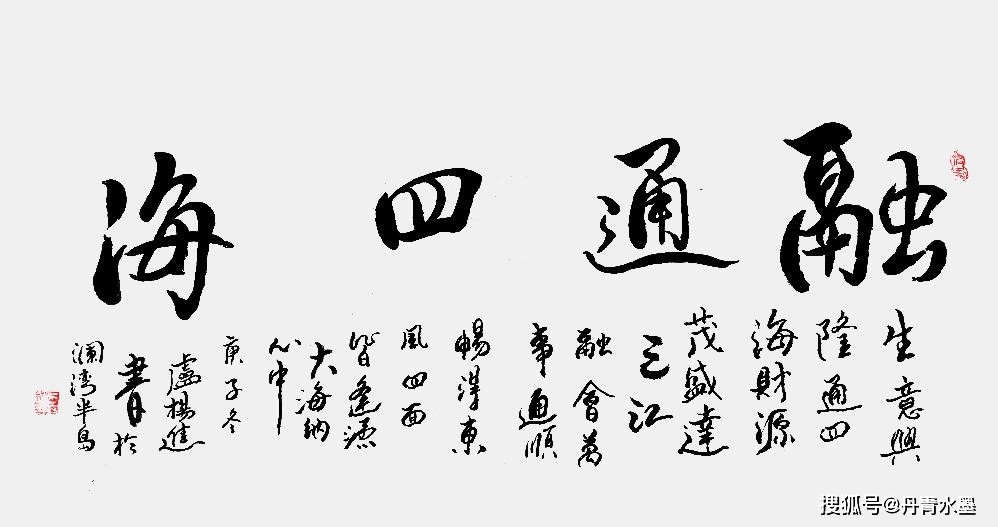 融通四海
生意興
隆通四
海財源
茂盛達
三江
融會萬
事通順
暢 東
風四面
皆逢源
大海納
心中
庚子冬
盧楊進
書於
瀾湾半島
搜狐号@丹青水墨